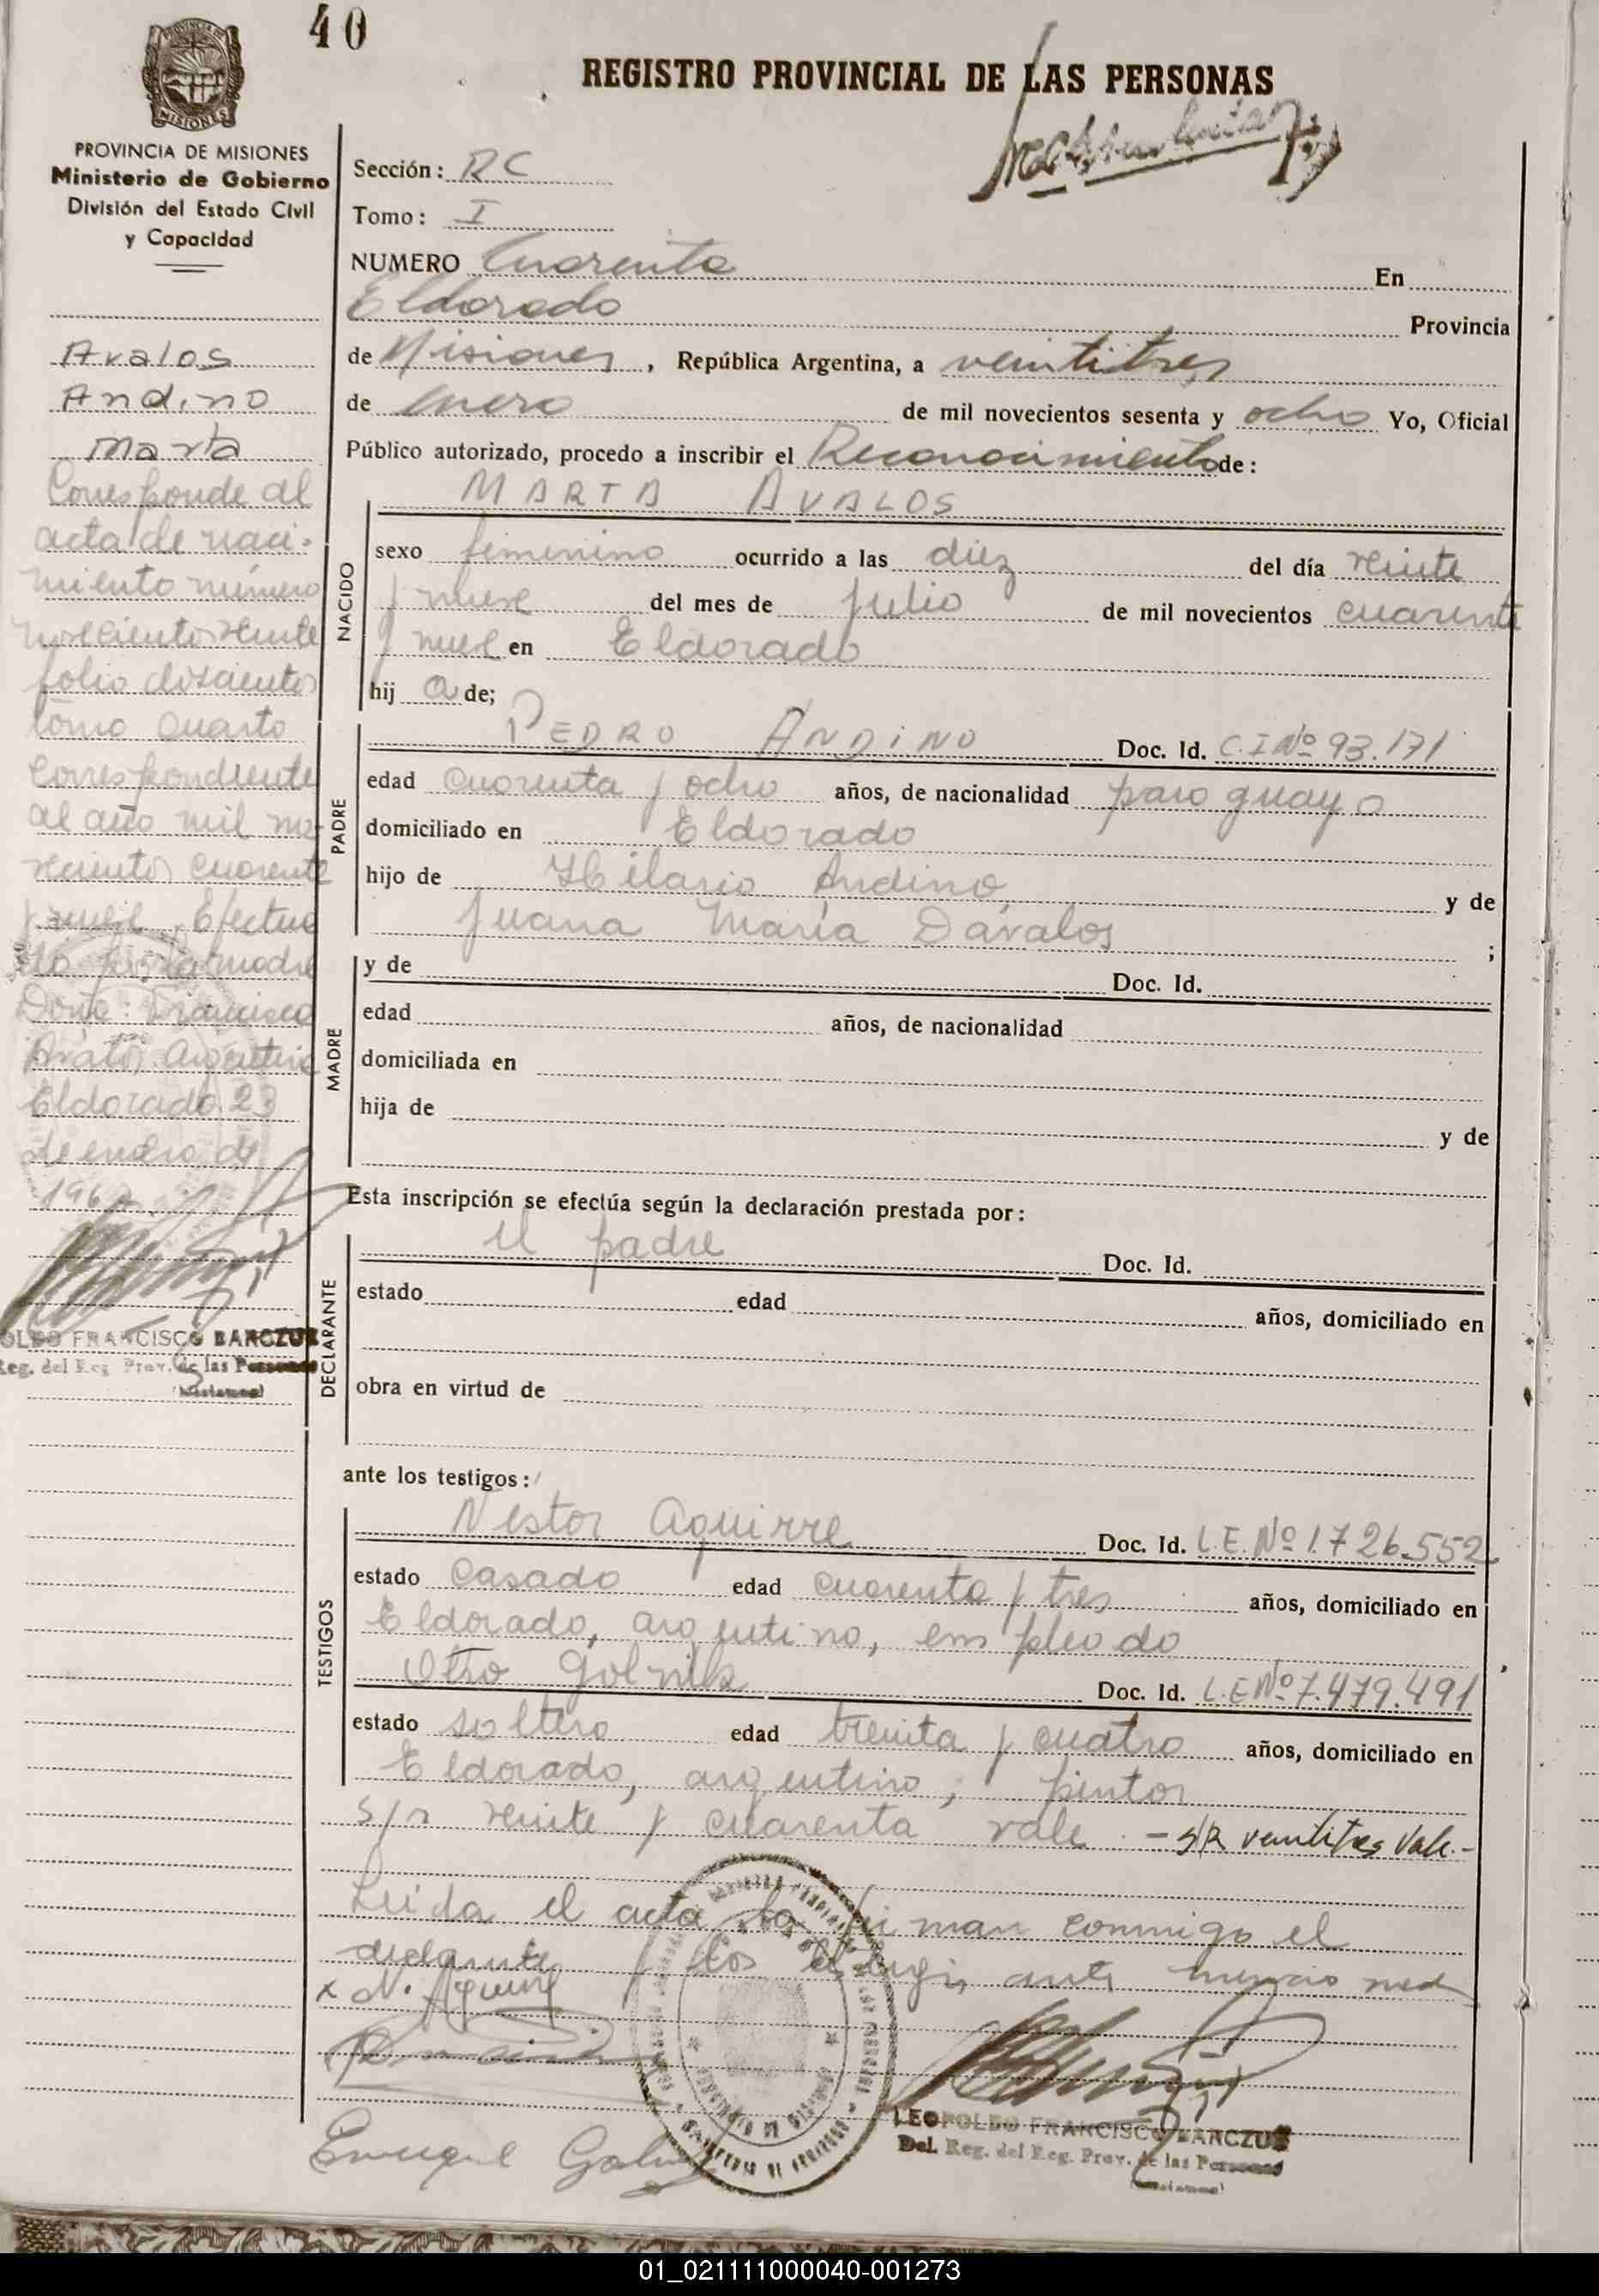 40
REGISTRO PROVINCIAL DE LAS PERSONAS
MISIONES
PROVINCIA DE MISIONES
Ministerio de Gobierno
División del Estado Civil
y Capacidad
Avalos
Andino
Marta
Corresponde al
acta de naci-
miento número
novecientos veinte
folio doscientos
tomo cuarto
correspondiente
al año mil no-
vecientos cuarenta
y nueve. Efectua
do por la madre
Doña: Francisca
Avalos, argentina
Eldorado, 23
de enero de
196
OLDO FRANCISCO BARCZUK
Reg. del Reg. Prov. de las Personas
(Misiones)
Sección: RC
Tomo: I
NUMERO Cuarenta En
Eldorado Provincia
de Misiones, República Argentina, a veintitres
de enero de mil novecientos sesenta y ocho Yo, Oficial
Público autorizado, procedo a inscribir el Reconocimiento de:
NACIDO
MARTA AVALOS
sexo femenino ocurrido a las diez del día veinte
y nueve del mes de julio de mil novecientos cuarenta
y nueve en Eldorado
hij a de;
PADRE
PEDRO ANDINO Doc. Id. C.I Nº 93.171
edad cuarenta y ocho años, de nacionalidad paraguaya
domiciliado en Eldorado
hijo de Hilario Andino, y de
Juana María Dávalos ;
MADRE
y de Doc. Id.
edad años, de nacionalidad
domiciliada en
hija de y de
Esta inscripción se efectúa según la declaración prestada por:
DECLARANTE
el padre Doc. Id.
estado edad años, domiciliado en
obra en virtud de
ante los testigos:
TESTIGOS
Nestor Aguirre Doc. Id. L.E. Nº 1.726.552
estado casado edad cuarenta y tres años, domiciliado en
Eldorado, argentino, empleado
Otto Golnik Doc. Id. L.E Nº 7.479.491
estado soltero edad treinta y cuatro años, domiciliado en
Eldorado, argentino, pintor
s/r veinte y cuarenta vale - s/R veintitres Vale.-
Leida el acta la firman conmigo el
declarante y los testigos ante
x N. Aguirre
Enrique
LEOPOLDO FRANCISCO BARCZUK
Del. Reg. del Reg. Prov. de las Personas
(Misiones)
01_021111000040-001273